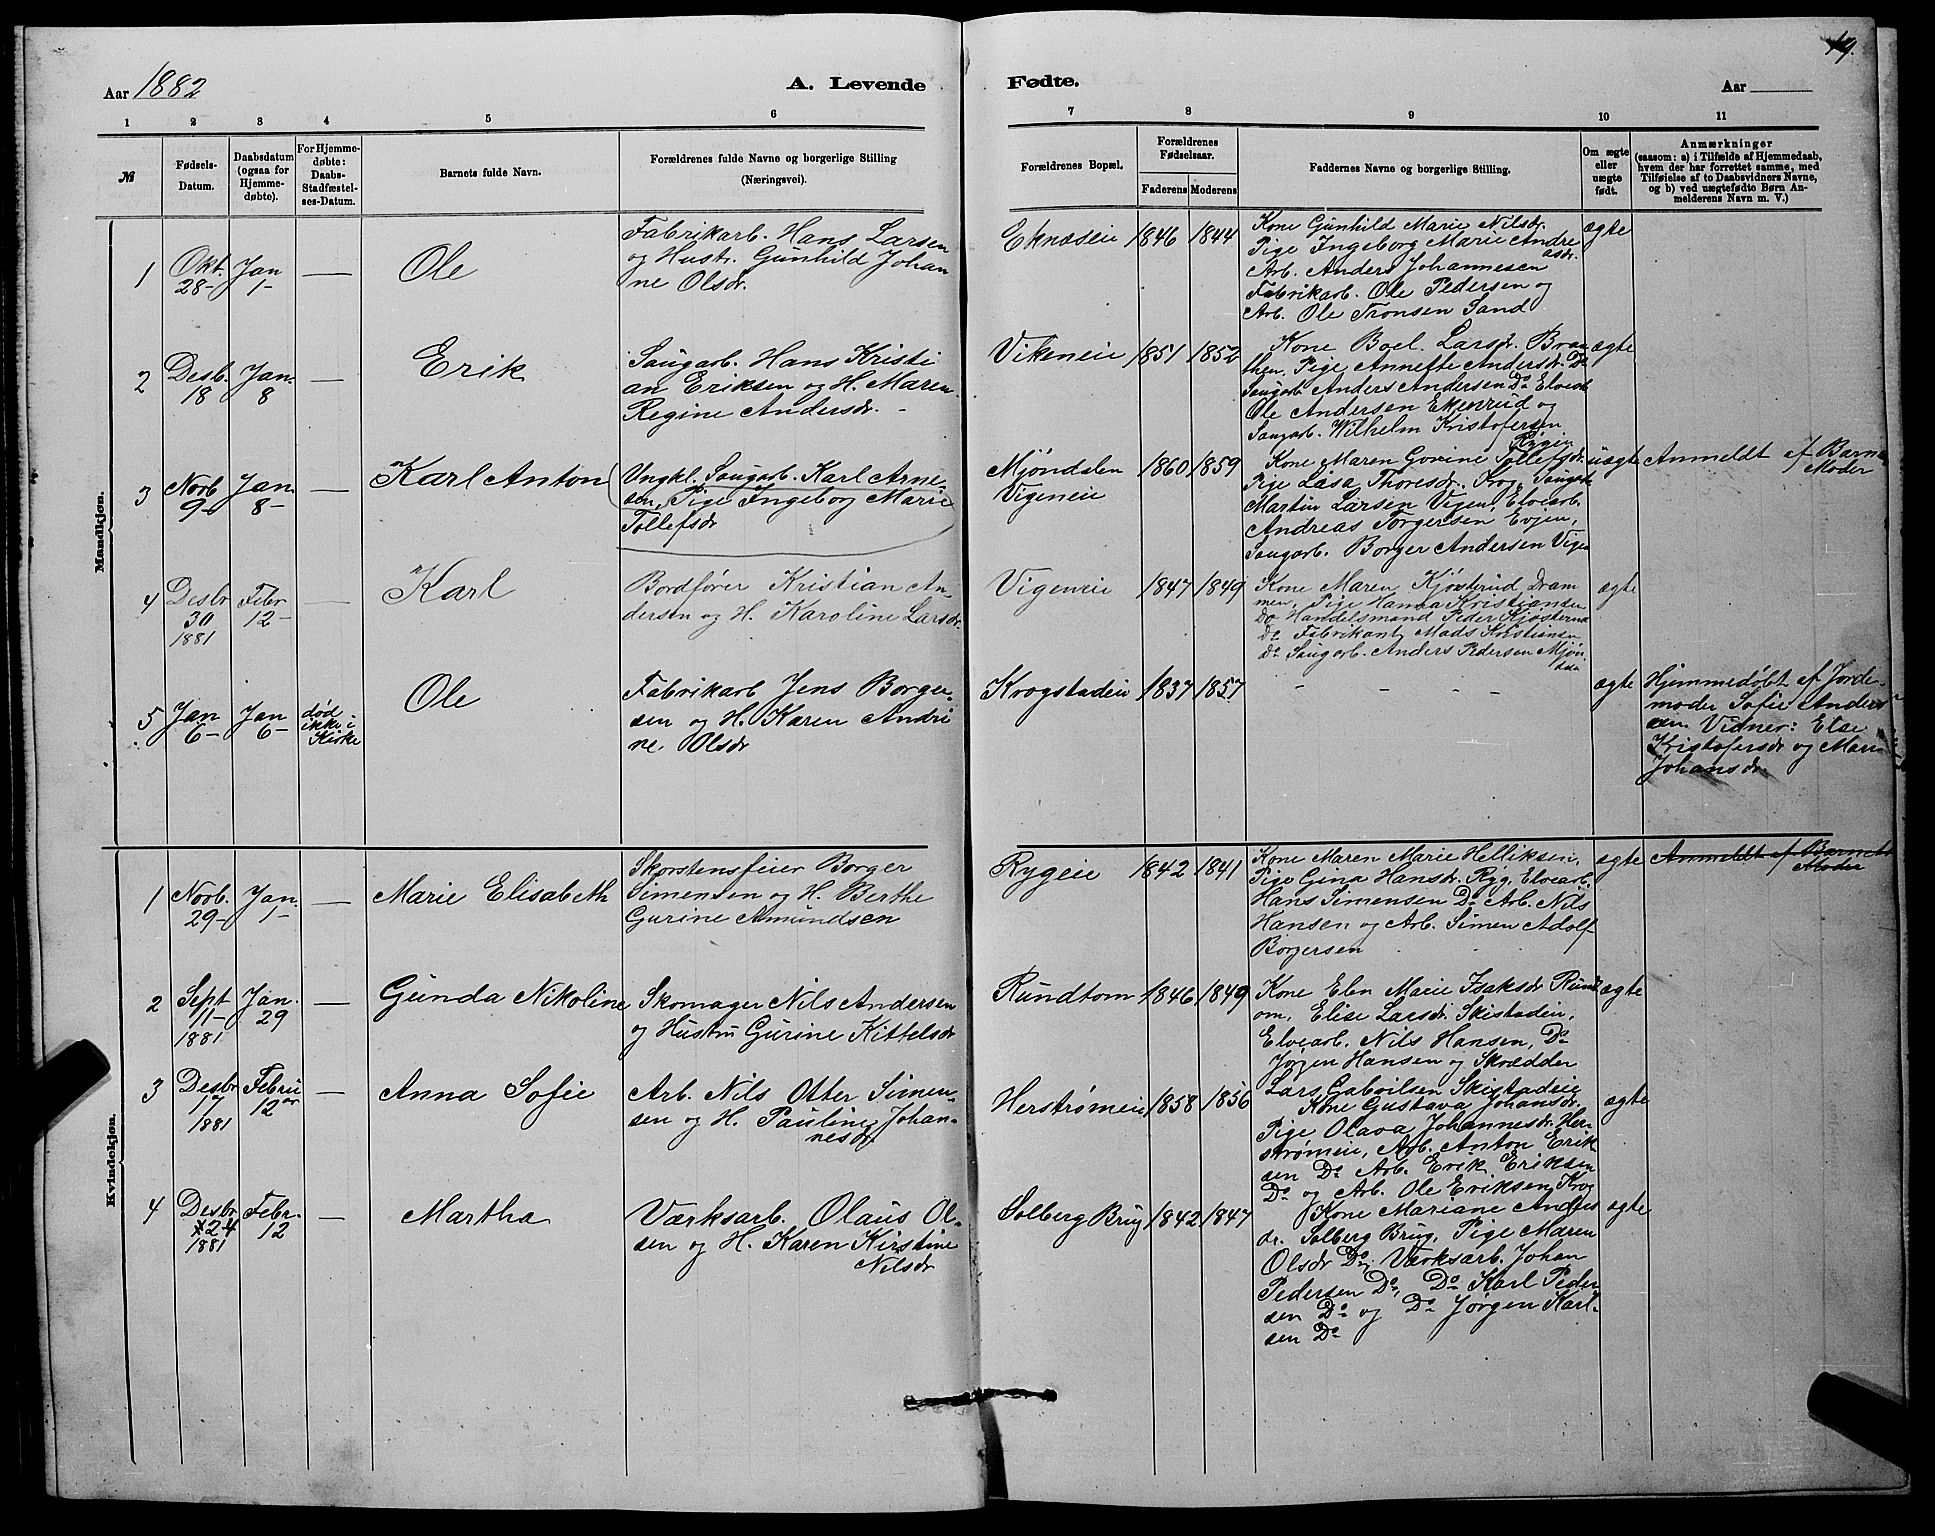 Aar 1882
A. Levende
Fødte.
Aar
19.
1 2 3 4 5 6 7 8 9 10 11
№
Fødsels-
Datum.
Daabsdatum
(ogsaa for
Hjemme-
døbte).
For Hjemme-
døbte:
Daabs-
Stadfæstel-
ses-Datum.
Barnets fulde Navn.
Forældrenes fulde Navne og borgerlige Stilling
(Næringsvei).
Forældrenes Bopæl.
Forældrenes
Fødselsaar.
Faderens
Moderens
Faddernes Navne og borgerlige Stilling.
Om ægte
eller
uægte
født.
Anmærkninger
(saasom: a) i Tilfælde af Hjemmedaab,
hvem der har forrettet samme, med
Tilføielse af to Daabsvidners Navne,
og b) ved uægtefødte Børn An-
melderens Navn m. V.)
Mandkjøn.
1
Okt.
28-
Jan
1-
—
Ole
Fabrikarb. Hans Larsen
og Hustr. Gunhild Johan
ne Olsdr.
Eknæseie
1846
1844
Kone Gunhild Marie Nilsdr.
Pige Ingeborg Marie Andre
asdr.
Arb. Anders Johannesen
Fabrikarb. Ole Pedersen og
Arb. Ole Tronsen Sand
ægte
2
Desb.
18
Jan.
8
—
Erik
Saugarb. Hans Kristi
an Eriksen og H. Maren
Regine Andersdr. -
Vikeneie
1851
1852
Kone Boel Larsdr. Braa
then, Pige Annette Andersdr. Do
Saugarb. Anders Andersen Do Elvearb
Ole Andersen Ekenrud og
Saugarb. Wilhelm Kristofersen
ægte
3
Novb
9-
Jan.
8-
—
Karl Anton
Ungkl. Saugarb. Karl Arne-
sen, Pige Ingeborg Marie
Tollefsdr
Mjøndalen
Vigeneie
1860
1859
Kone Maren Govine Tollefsdr.
Pige Lasa Thoresdr. Frog, Saugarb.
Martin Larsen Vigen, Elvearb.
Andreas Torgersen Evjen,
Saugarb. Borger Andersen Vigen
uægte
Anmeldt af Barnets
Moder
4
Desbr
30
1881
Febr
12-
—
Karl
Bordfører Kristian An-
dersen og H. Karoline Larsdr.
Vigeneie
1847
1849
Kone Maren Kjøsterud, Dram
men, Pige Hanna Kristiansen
Do Handelsmand Peder Kjøsterud
Do Fabrikant Mads Kristiansen
Do Saugarb. Anders Pedersen Mjøn
dalen
ægte
5
Jan
6-
Jan
6-
død
ikke i
Kirke
Ole
Fabrikarb Jens Borger-
sen og H. Karen Andri
ne Olsdr
Krogstadeie
1837
1857
- - - -
ægte
Hjemmedøbt af Jorde-
moder Sofie Anders
sen. Vidner: Else
Kristofersdr og Maren
Johansdr.
Kvindekjøn.
1
Novb.
29-
Jan.
1-
—
Marie Elisabeth
Skorstensfeier Borger
Simensen og H. Berthe
Gurine Amundsen
Rygeie
1842
1841
Kone Maren Marie Helliksen,
Pige Gina Hansdr. Ryg, Elvearb.
Hans Simensen Do Arb. Nils
Hansen og Arb. Simen Adolf
Borgersen
ægte
Anmeldt af Barnets
Moder
2
Sept
11-
1881
Jan.
29
—
Gunda Nikoline
Skomager Nils Andersen
og Hustru Gurine Kittelsdr
Rundtom
1846
1849
Kone Elen Marie Isaksdr Rundt
om, Elise Larsdr. Skistadeie,
Elvearb. Nils Hansen, Do
Jørgen Hansen og Skrædder
Lars Gabrilsen Skistadeie
ægte
3
Desbr
17
1881
Febru
12 ar
—
Anna Sofie
Arb. Nils Otter Simen-
sen og H. Pauline Johan-
nesdr
Herstrømeie
1858
1856
Kone Gustava Johansdr.
Pige Olava Johannesdr. Her-
strømeie, Arb. Anton Erik
sen Do Arb. Erik Eriksen
Do og Arb. Ole Eriksen Krog
ægte
4
Desbr
24
1881
Febr.
12
—
Martha
Værksarb. Olaus Ol-
sen og H. Karen Kirstine
Nilsdr
Solberg Brug
1842
1847
Kone Mariane Anders
dr. Solberg Brug, Pige Maren
Olsdr Do, Værksarb. Johan
Pedersen Do, Do Karl Peder
sen Do og Do Jørgen Karl-
sen Do
ægte